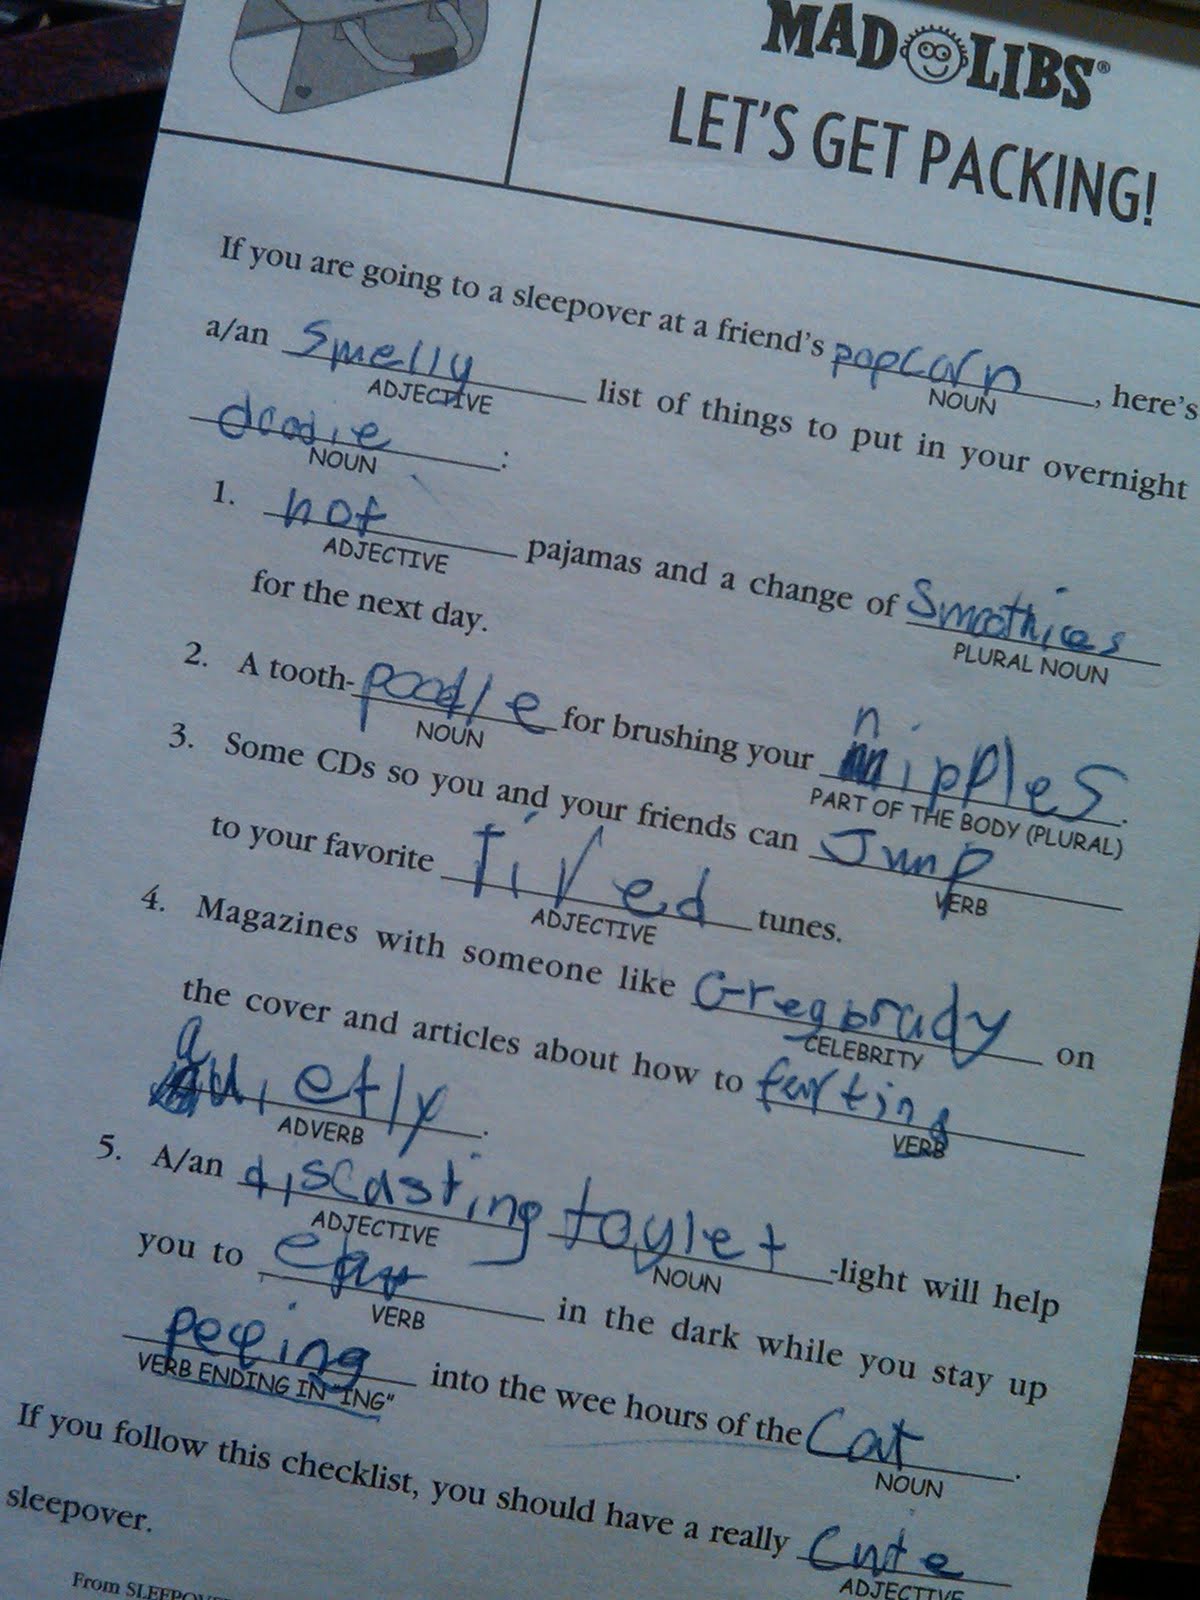 MAD LIBS®
LET'S GET PACKING!
If you are going to a sleepover at a friend's popcorn, here's
NOUN
a/an Smelly list of things to put in your overnight
ADJECTIVE
doodie:
NOUN
1. hot pajamas and a change of Smoothies
ADJECTIVE
PLURAL NOUN
for the next day.
2. A tooth-poodle for brushing your nipples.
NOUN
PART OF THE BODY (PLURAL)
3. Some CDs so you and your friends can Jump
VERB
to your favorite tired tunes.
ADJECTIVE
4. Magazines with someone like Greg brady on
CELEBRITY
the cover and articles about how to farting
VERB
quietly.
ADVERB
5. A/an discasting toylet-light will help
ADJECTIVE
NOUN
you to in the dark while you stay up
VERB
peeing into the wee hours of the Cat.
VERB ENDING IN "ING"
NOUN
If you follow this checklist, you should have a really Cute
ADJECTIVE
sleepover.
From